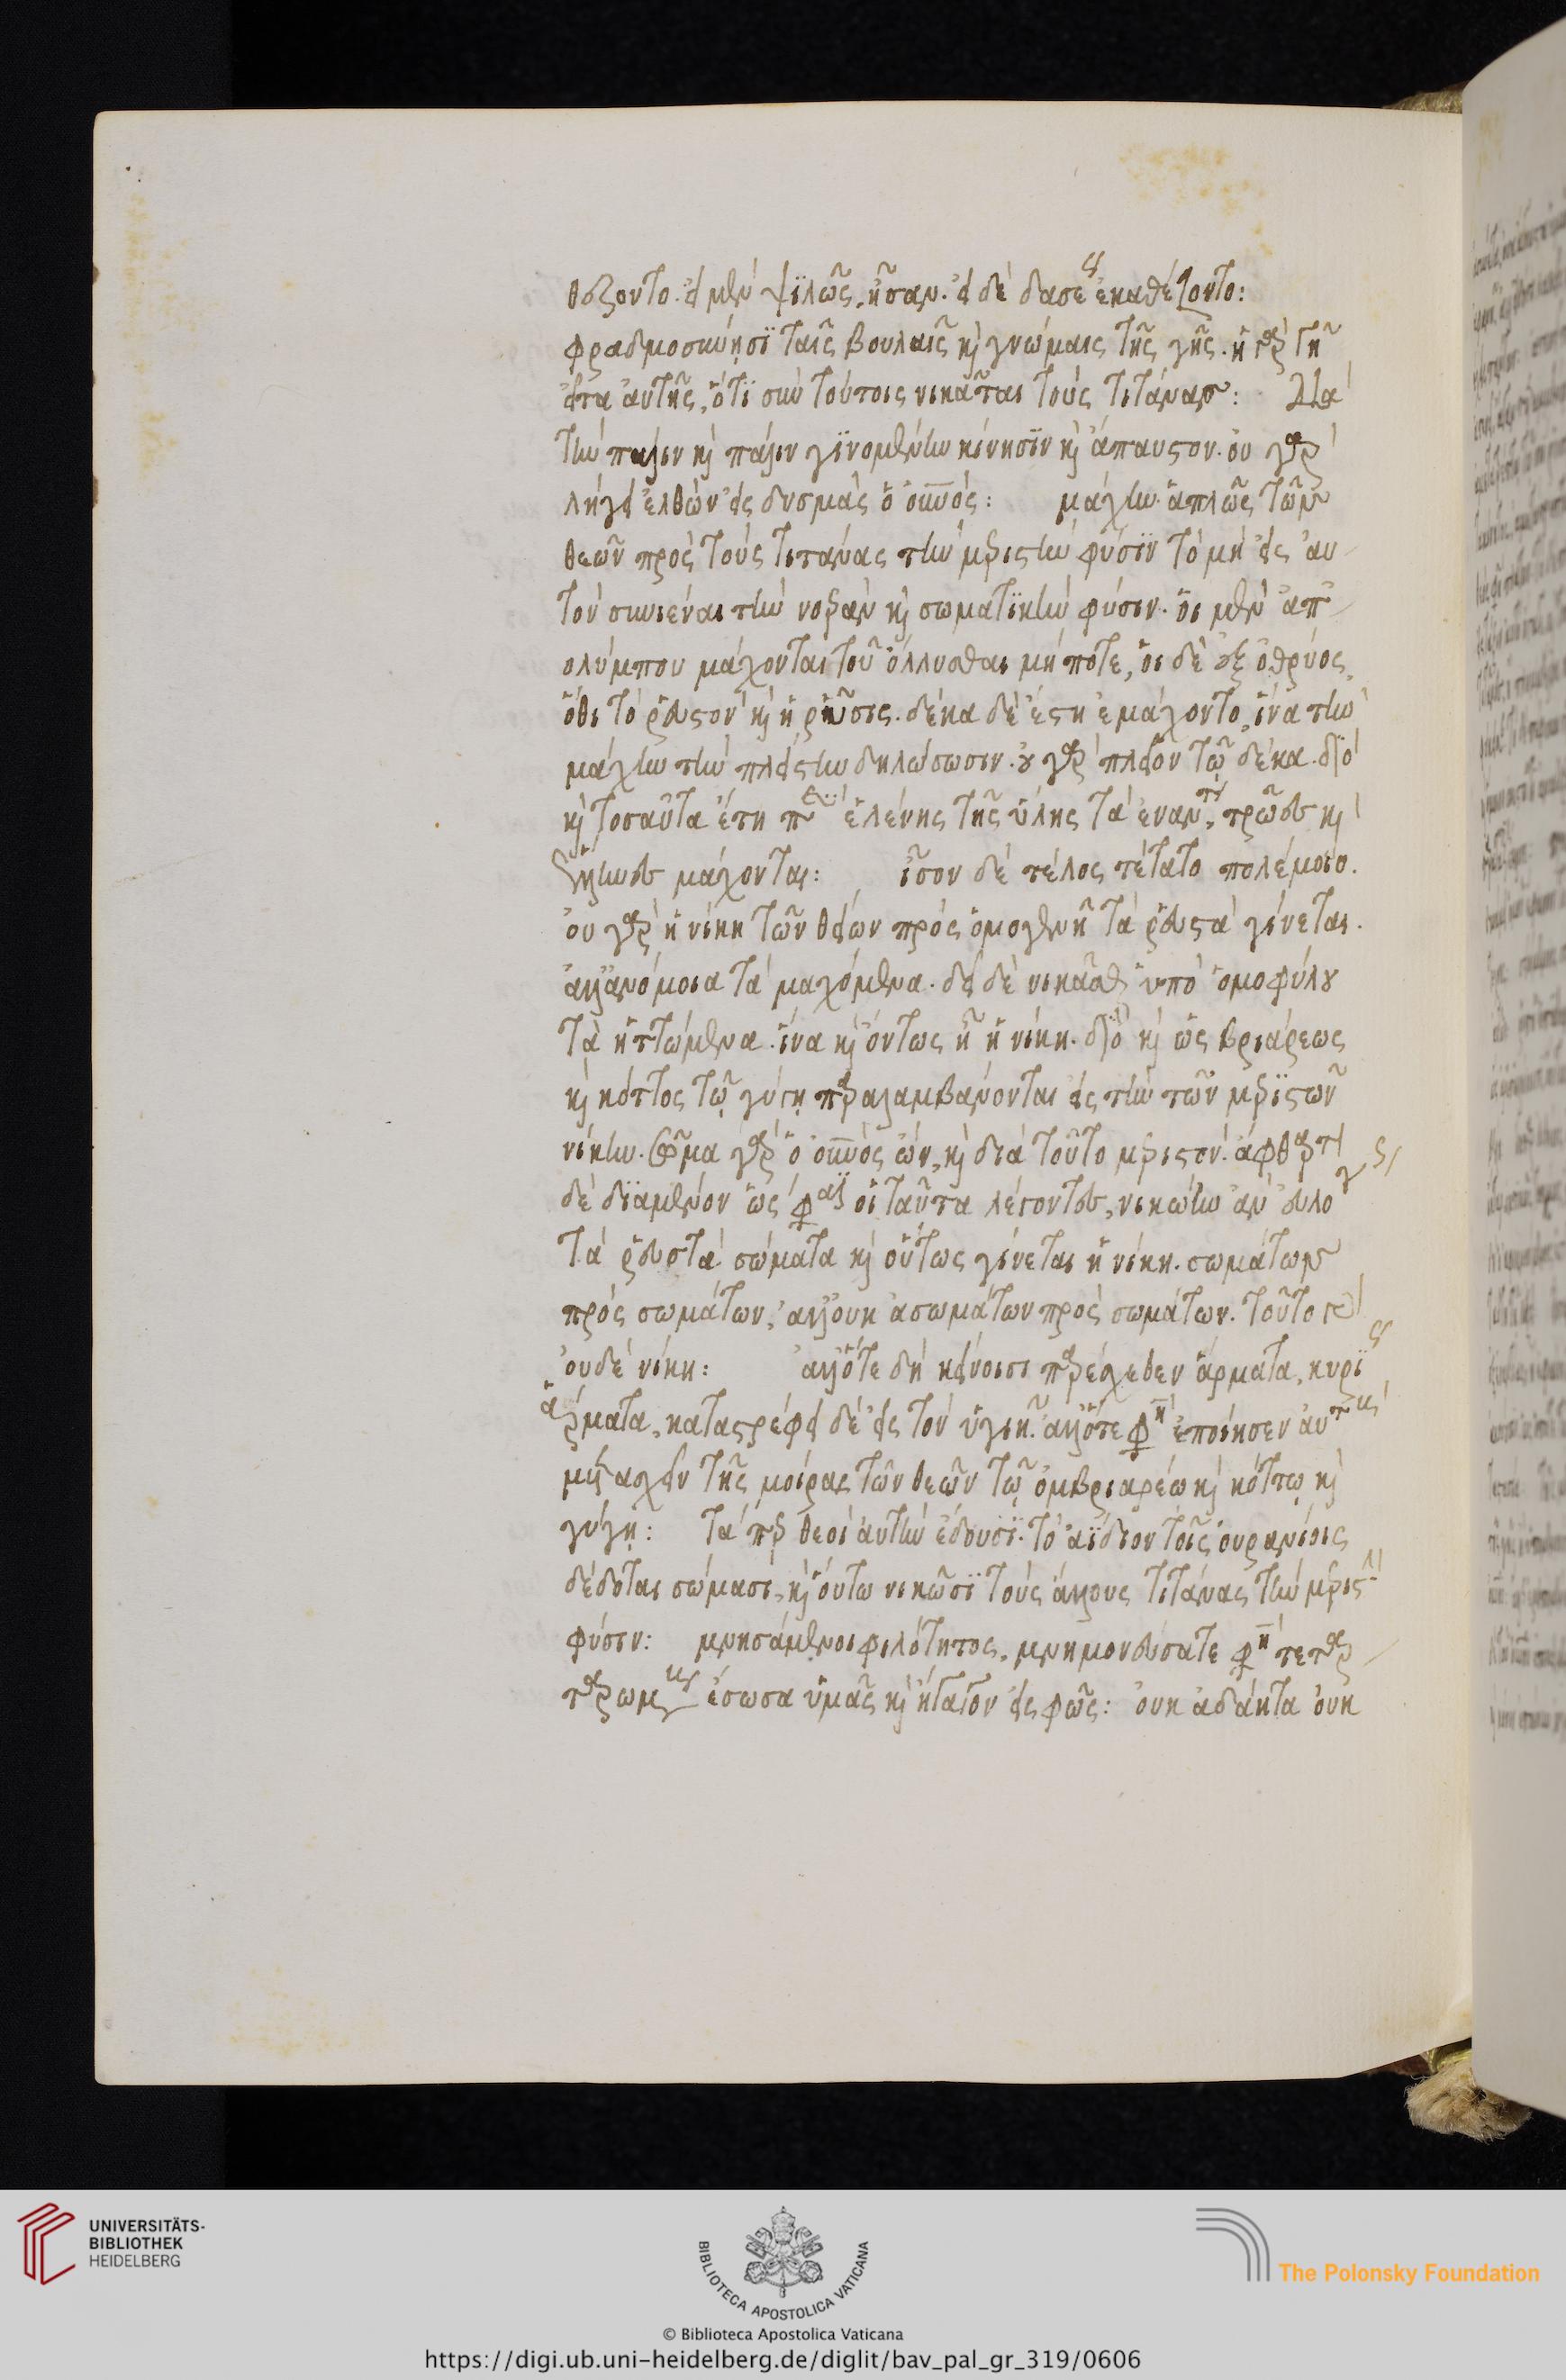 θίζοντο. εἰ μὲν ψιλῶς, ἦσαν. εἰ δὲ δασέως ἐκαθέζοντο:
φραδμοσύνησι ταῖς βουλαῖς καὶ γνώμαις τῆς γῆς. ἡ γὰρ γῆ
αὐτῆς, ὅτι σὺν τούτοις νικᾶται τοὺς τιτάνας:
τὴν πάλιν καὶ πάλιν γινομένην κίνησιν καὶ ἄπαυστον. οὐ γὰρ
λήγει ἐλθὼν εἰς δυσμὰς ὁ οὐνός: μάχην. ἁπλῶς τῶν
θεῶν πρὸς τοὺς τιτάνας τὴν μεριστὴν φύσιν τὸ μὴ εἰς αὐ
τὸν συνιέναι τὴν νοερὰν καὶ σωματικὴν φύσιν. οἱ μὲν ἀπ
ολύμπου μάχονται τοῦ ὄλλυσθαι μήποτε, οἱ δὲ ἐξ ὄθρυος,
ὅθι τὸ ῥευστὸν καὶ ἡ ῥεῦσις. δέκα δὲ ἔτη ἐμάχοντο, ἵνα τὴν
μάχην τὴν πλείστην δηλώσωσιν. οὐ γὰρ πλεῖον τῷ δέκα. διὸ
καὶ τοσαῦτα ἔτη περὶ ἑλένης τῆς ὕλης τὰ ἐναντία, τρῶες καὶ
ἕλληνες μάχονται: ἶσον δὲ τέλος τέτατο πολέμοιο.
οὐ γὰρ ἡ νίκη τῶν θείων πρὸς ὁμογενῆ τὰ ῥευστὰ γίνεται.
ἀλλ' ἀνόμοια τὰ μαχόμενα. δεῖ δὲ νικᾶσθαι ὑπὸ ὁμοφύλου
τὰ ἡττώμενα. ἵνα καὶ ὄντως ἦ ἡ νίκη. διὸ καὶ ὡς βριάρεως
καὶ κόττος τῷ γύγῃ παραλαμβάνονται εἰς τὴν τῶν μεριστῶν
νίκην. σῶμα γὰρ ὁ οὐνὸς ὢν, καὶ διὰ τοῦτο μεριστόν. ἄφθαρτον
δὲ διαμένον ὥς φασιν οἱ ταῦτα λέγοντες, νικῴην ἂν εὐλόγως
τὰ ῥευστὰ σώματα καὶ οὕτως γίνεται ἡ νίκη. σωμάτων
πρὸς σωμάτων, ἀλλ' οὐκ ἀσωμάτων πρὸς σωμάτων. τοῦτο γὰρ
οὐδὲ νίκη: ἀλλ' ὅτε δὴ κείνοισι παρέσχεθεν ἄρματα, κυρίως
ἄρματα, καταστρέφει δὲ εἰς τὸν ὑγιῆ. ἀλλ' ὅτε φησὶν ἐποίησεν αὐτοὺς
μετασχεῖν τῆς μοίρας τῶν θεῶν τῷ ὀμβριαρέῳ καὶ κόττῳ καὶ
γύγῃ: τά περ θεοὶ αὐτὴν ἔδουσι. τὸ ἀΐδιον τοῖς οὐρανίοις
δέδοται σώμασι, καὶ οὕτω νικῶσι τοὺς ἄλλους τιτάνας τὴν μεριστὴν
φύσιν: μνησάμενοι φιλότητος, μνημονεύσατε φησὶ
ἔσωσα ὑμᾶς καὶ ἤγαγον εἰς φῶς: οὐκ ἀδάητα οὐκ
UNIVERSITÄTS-
BIBLIOTHEK
HEIDELBERG
BIBLIOTECA APOSTOLICA VATICANA
The Polonsky Foundation
© Biblioteca Apostolica Vaticana
https://digi.ub.uni-heidelberg.de/diglit/bav_pal_gr_319/0606